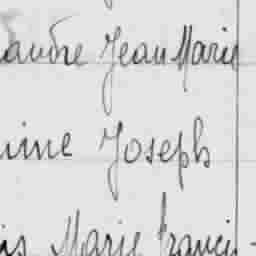 andre Jean Marie
ine Joseph
is Marie Francis-